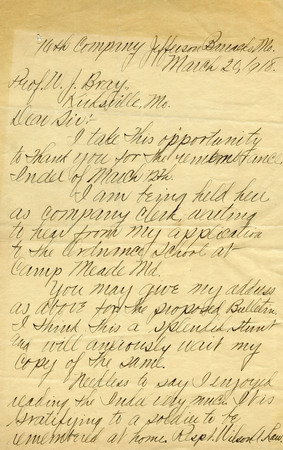 16th Company Jefferson Barracks, Mo.
March 20, 1918.
Prof. W. J. Bray,
Kirksville, Mo.
Dear Sir:-
I take this opportunity
to thank you for the remembrance,
Index of March 13th.
I am being held here
as company clerk, waiting
to hear from my application
to the Ordnance School at
Camp Meade Md.
You may give my address
as above for the proposed Bulletin
I think this a splendid stunt
and will anxiously wait my
copy of the same.
Needless to say I enjoyed
reading the Index very much. It is
gratifying to a soldier to be
remembered at home. Respt. Wilson